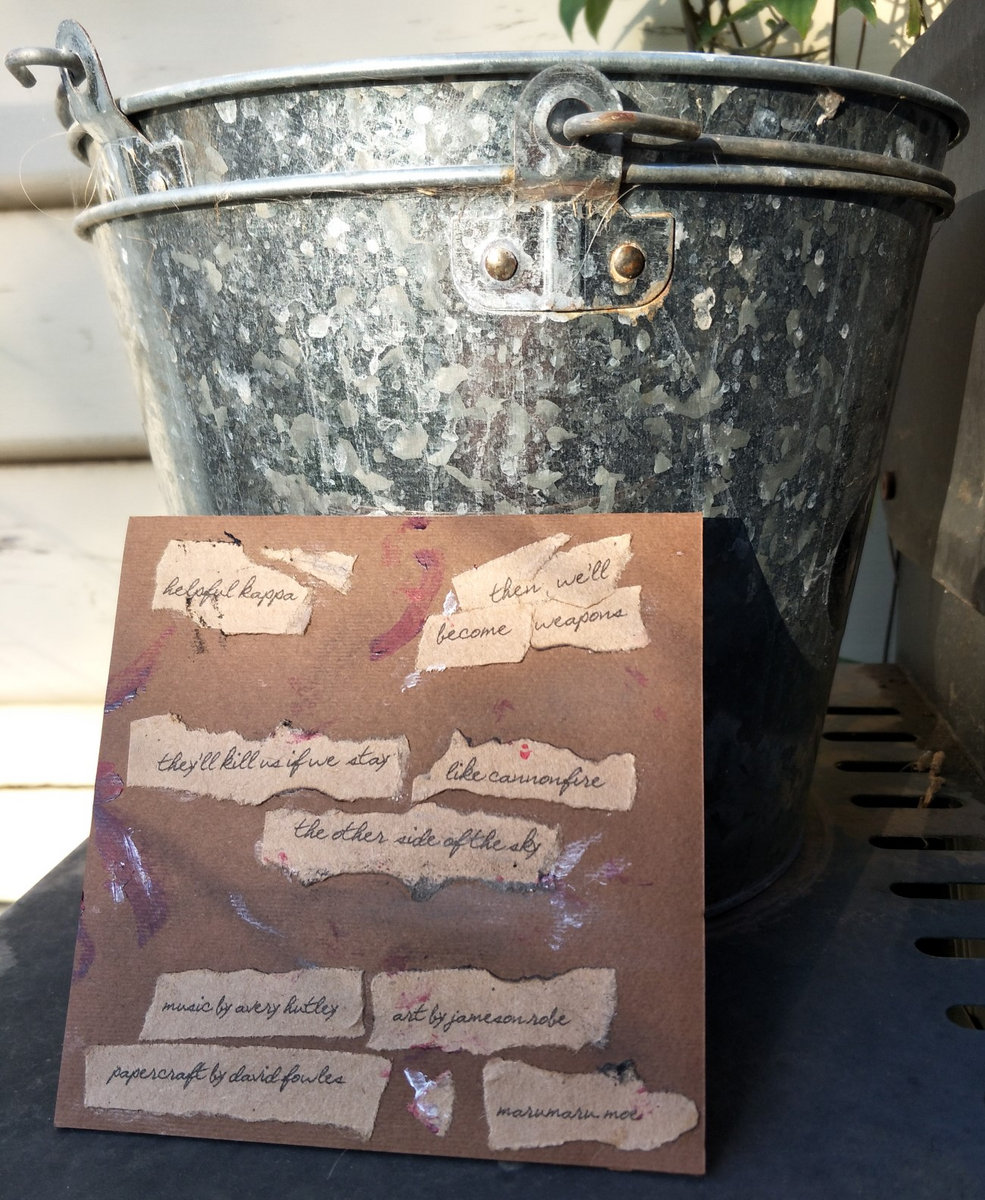 helpful kappa
then we'll
become weapons
they'll kill us if we stay
like cannonfire
the other side of the sky
music by avery hutley
art by jameson robe
papercraft by david fowles
marumaru moe